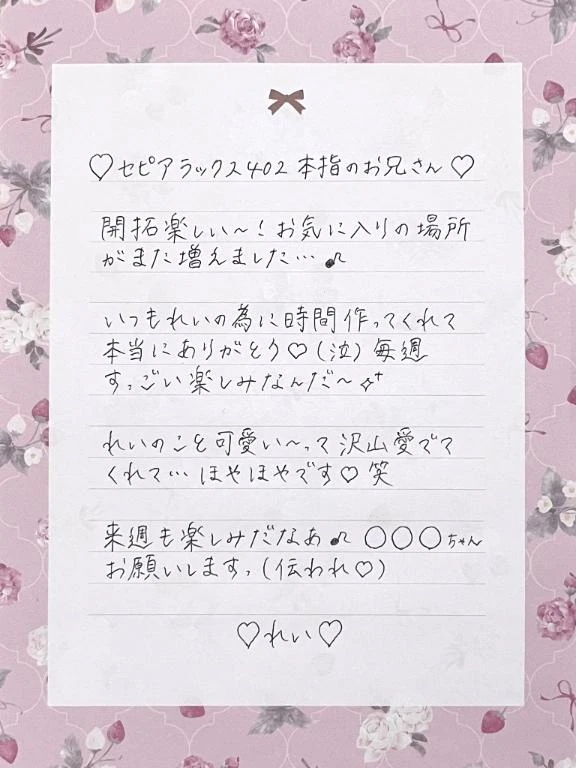 ♡セピアラックス402 本指のお兄さん♡
開拓楽しい〜！お気に入りの場所
がまた増えました…♪
いつもれいの為に時間作ってくれて
本当にありがとう♡(泣) 毎週
すっごい楽しみなんだ〜✧⁺
れいのこと可愛い〜って沢山愛でて
くれて… ほやほやです♡ 笑
来週も楽しみだなあ♪ 〇〇〇ちゃん
お願いしますっ(伝われ♡)
♡れい♡